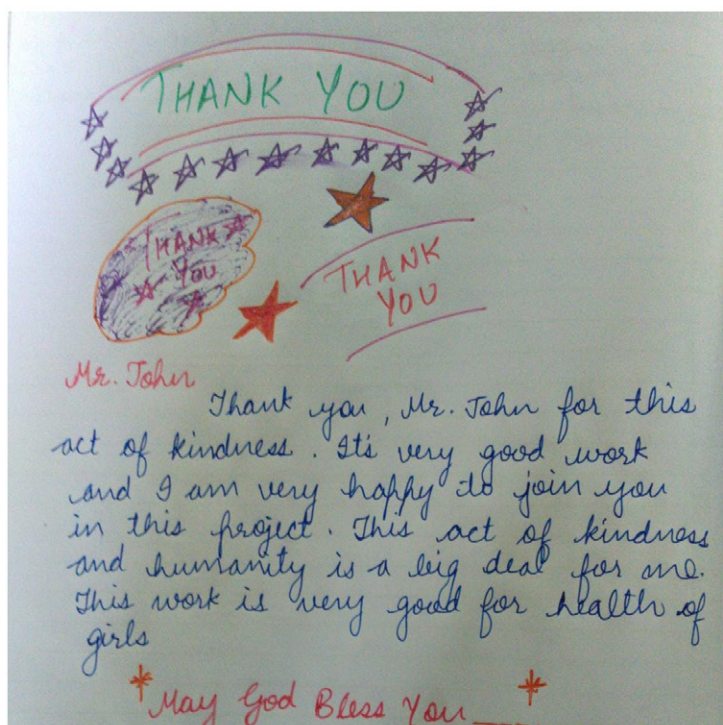 THANK YOU
THANK
YOU
THANK
YOU
Mr. John
Thank you, Mr. John for this
act of kindness. It's very good work
and I am very happy to join you
in this project. This act of kindness
and humanity is a big deal for me.
This work is very good for health of
girls
May God Bless You